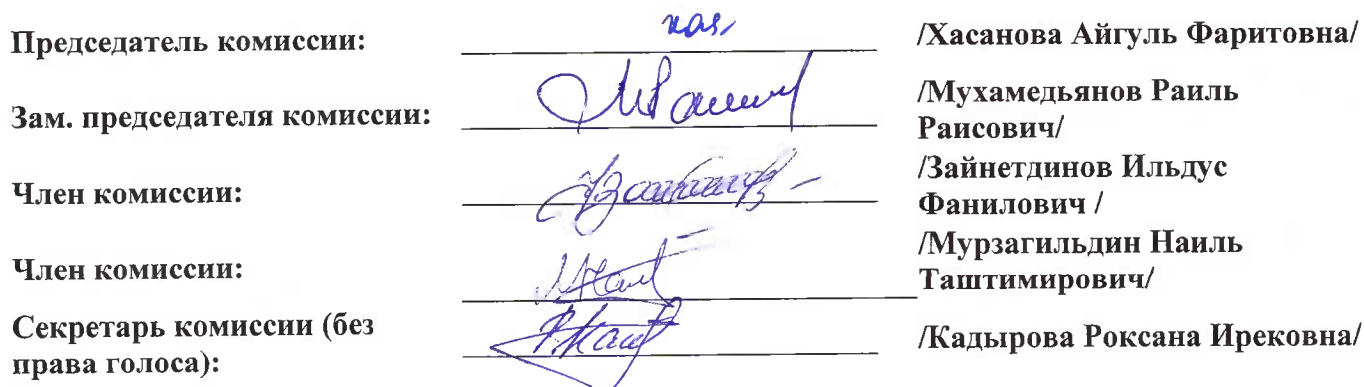 Председатель комиссии: /Хасанова Айгуль Фаритовна/
Зам. председателя комиссии: /Мухамедьянов Раиль
Раисович/
Член комиссии: /Зайнетдинов Ильдус
Фанилович /
Член комиссии: /Мурзагильдин Наиль
Таштимирович/
Секретарь комиссии (без
права голоса): /Кадырова Роксана Ирековна/